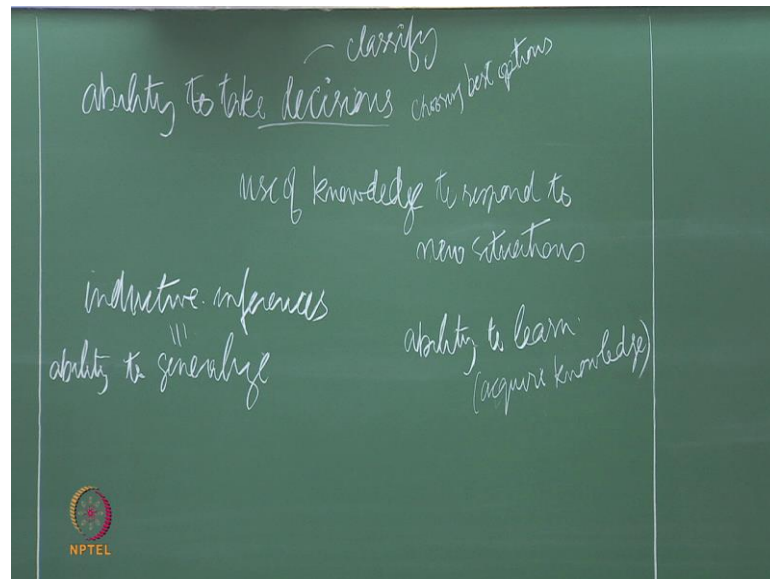 classify
ability to take decisions choosing best options
use of knowledge to respond to
new situations
inductive inferences
ability to generalize
ability to learn
(acquire knowledge)
NPTEL